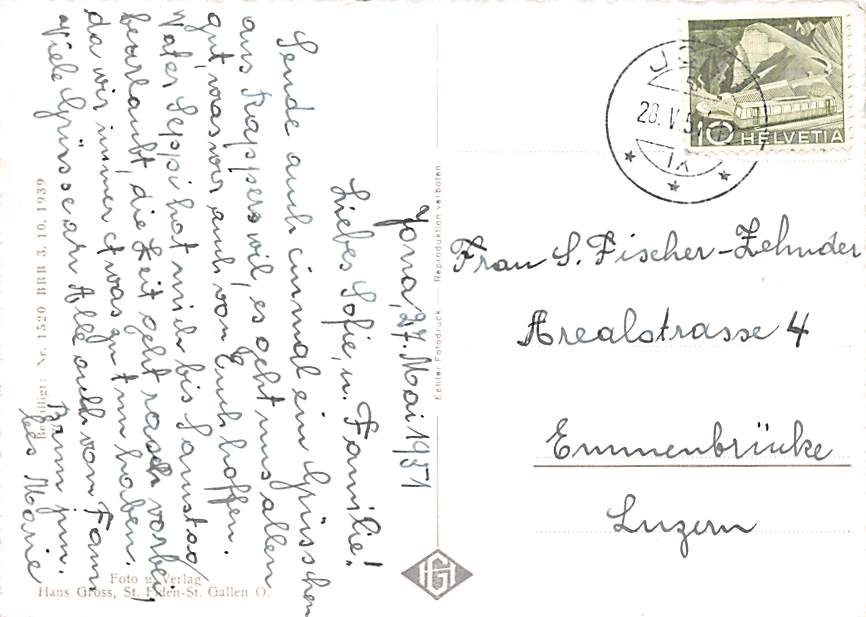 Jona, 27. Mai 1951
Liebes Sofie, u. Familie!
Sende auch einmal ein Grüsschen
aus Rapperswil, es geht uns allen
gut, was wir auch von Euch hoffen.
Vater Seppi hat mich bis Samstag
beurlaubt, die Zeit geht rasch vorbei,
da wir immer etwas zu tun haben.
Viele Grüsse an Alle auch vom Fam.
jun.
bes Marie
Bewilligt: Nr. 1520 BRB 3. 10. 1939
Foto u. Verlag
Hans Gross, St. Fiden-St. Gallen O.
Echter Fotodruck — Reproduktion verboten
HG
28. V. 51
IX
10 HELVETIA
Frau S. Fischer-Zehnder
Arealstrasse 4
Emmenbrücke
Luzern